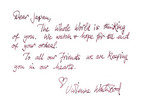 Dear Japan,
The Whole World is thinking
of you. We watch & hope for the end
of your ordeal.
To all our Friends we are keeping
you in our hearts.
♡ Vivienne Westwood